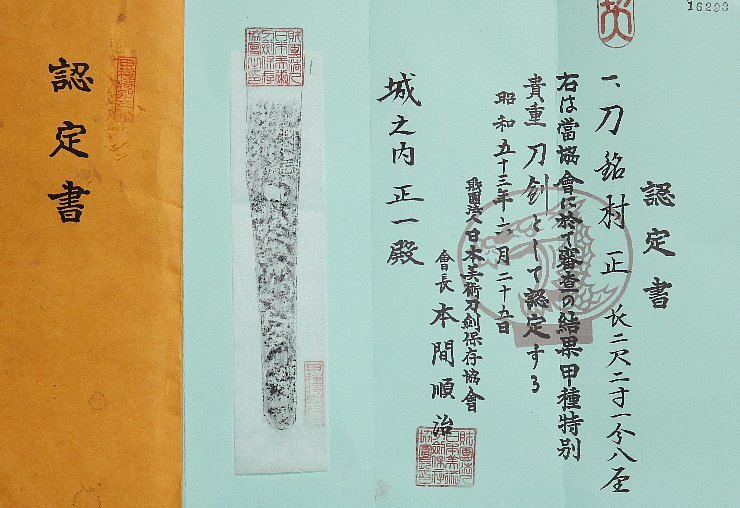 認定書
16293
認定書
一、刀 銘 村正 長二尺二寸一分八厘
右は當協會に於て審査の結果甲種特別
貴重刀剣として認定する
昭和五十三年六月二十五日
財團法人日本美術刀剣保存協會
會長 本間順治
城之内正一殿